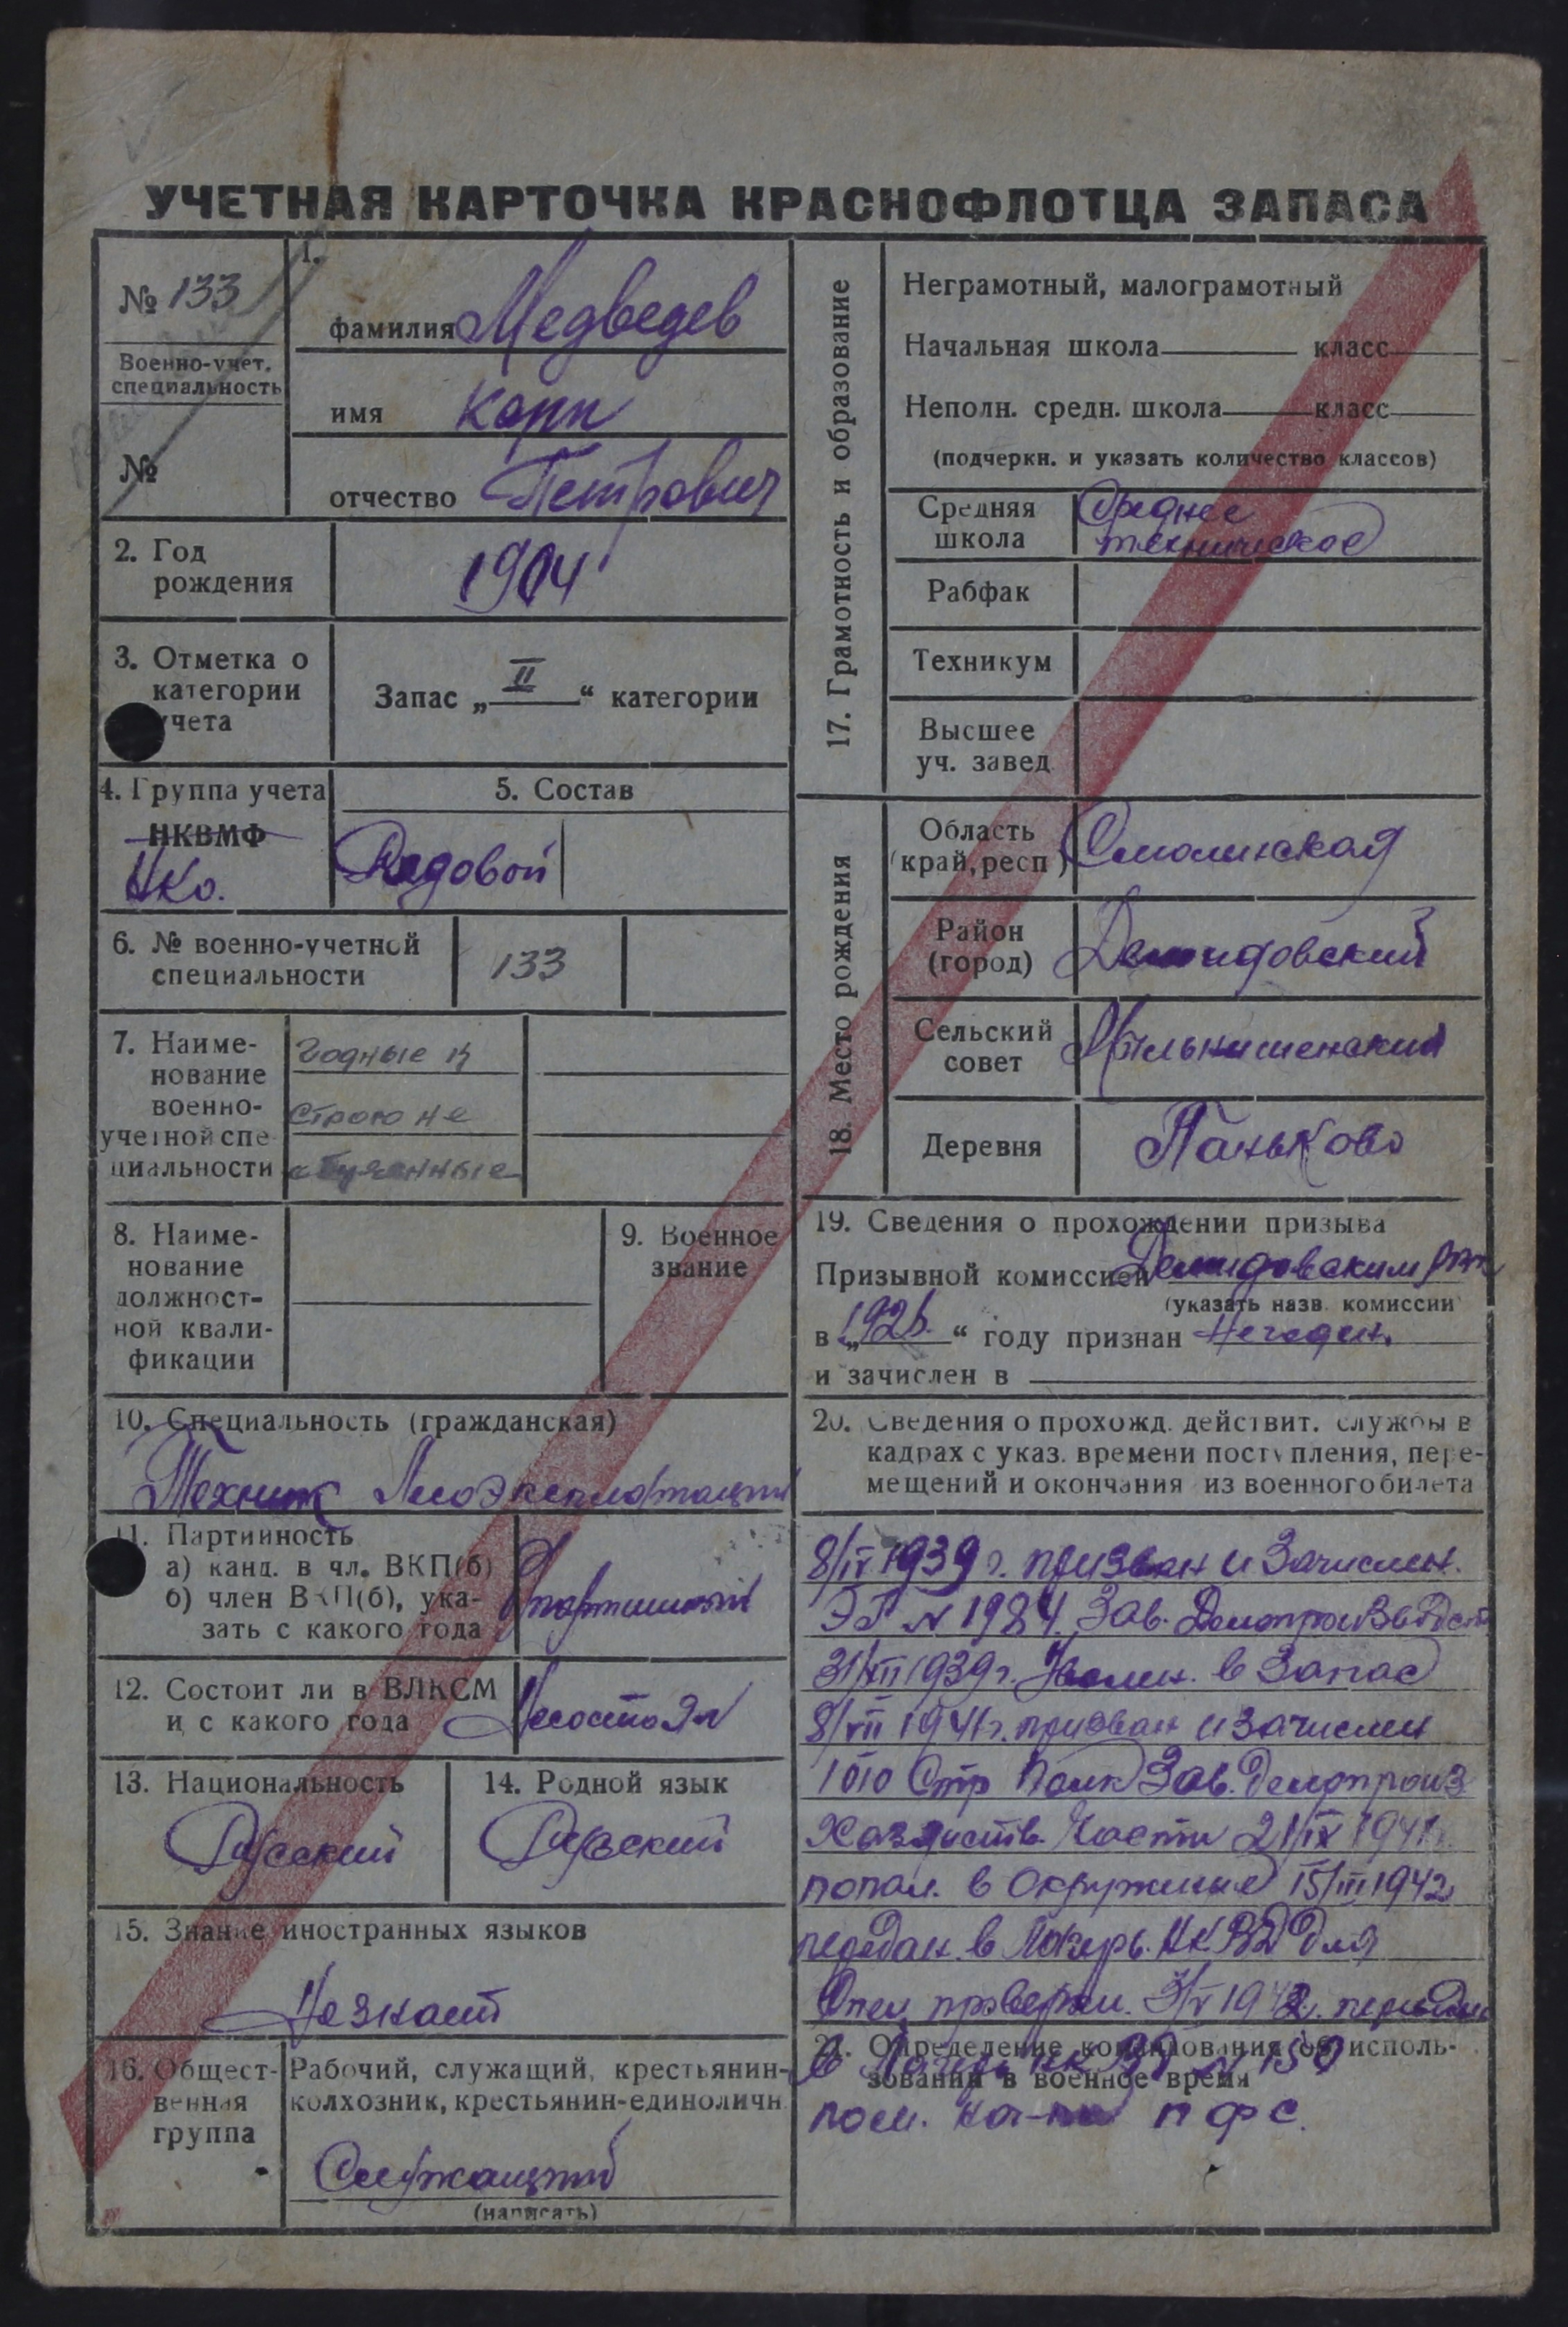 УЧЕТНАЯ КАРТОЧКА КРАСНОФЛОТЦА ЗАПАСА
№ 133
Военно-учет.
специальность
№
1.
фамилия Медведев
имя Карп
отчество Петрович
2. Год
рождения
1904
3. Отметка о
категории
учета
Запас „ II “ категории
4. Группа учета
НКВМФ
НКО.
5. Состав
Рядовой
6. № военно-учетной
специальности
133
7. Наиме-
нование
военно-
учетной спе
циальности
Годные к
строю не
обученные
8. Наиме-
нование
должност-
ной квали-
фикации
9. Военное
звание
10. Специальность (гражданская)
Техник Лесоэксплотации
11. Партийность
а) канд. в чл. ВКП(б)
б) член ВКП(б), ука-
зать с какого года
12. Состоит ли в ВЛКСМ
и с какого года
Несостоял
13. Национальность
Русский
14. Родной язык
Русский
15. Знание иностранных языков
Незнает
16. Общест-
венная
группа
Рабочий, служащий, крестьянин-
колхозник, крестьянин-единоличн.
Служащий
(написать)
17. Грамотность и образование
Неграмотный, малограмотный
Начальная школа класс
Неполн. средн. школа класс
(подчеркн. и указать количество классов)
Средняя
школа
Среднее
техническое
Рабфак
Техникум
Высшее
уч. завед
18. Место рождения
Область
(край, респ)
Смоленская
Район
(город)
Демидовский
Сельский
совет
Деревня
Паньково
19. Сведения о прохождении призыва
Призывной комиссией Демидовским
(указать назв. комиссии
в „1926.“ году признан Негоден.
и зачислен в
20. Сведения о прохожд. действит. службы в
кадрах с указ. времени поступления, пере-
мещений и окончания из военного билета
8/IX 1939 г. призван и Зачислен.
ЭГ № 1984. Зав. Делопроизводст
31/XII 1939 г. Уволен. в Запас
8/VII 1941 г. призван и зачислен
1010 Стр Полк Зав. Делопроиз
Хозяйств. Части 21/IX 1941
попал. в окружение 15/III 1942
передан в Лагерь. НКВД для
Спец проверки. 3/V 1942. передан
21. Определение командования об исполь-
зовании в военное время
в Лагерь НКВД № 150
пом. нач-ка ПФС.